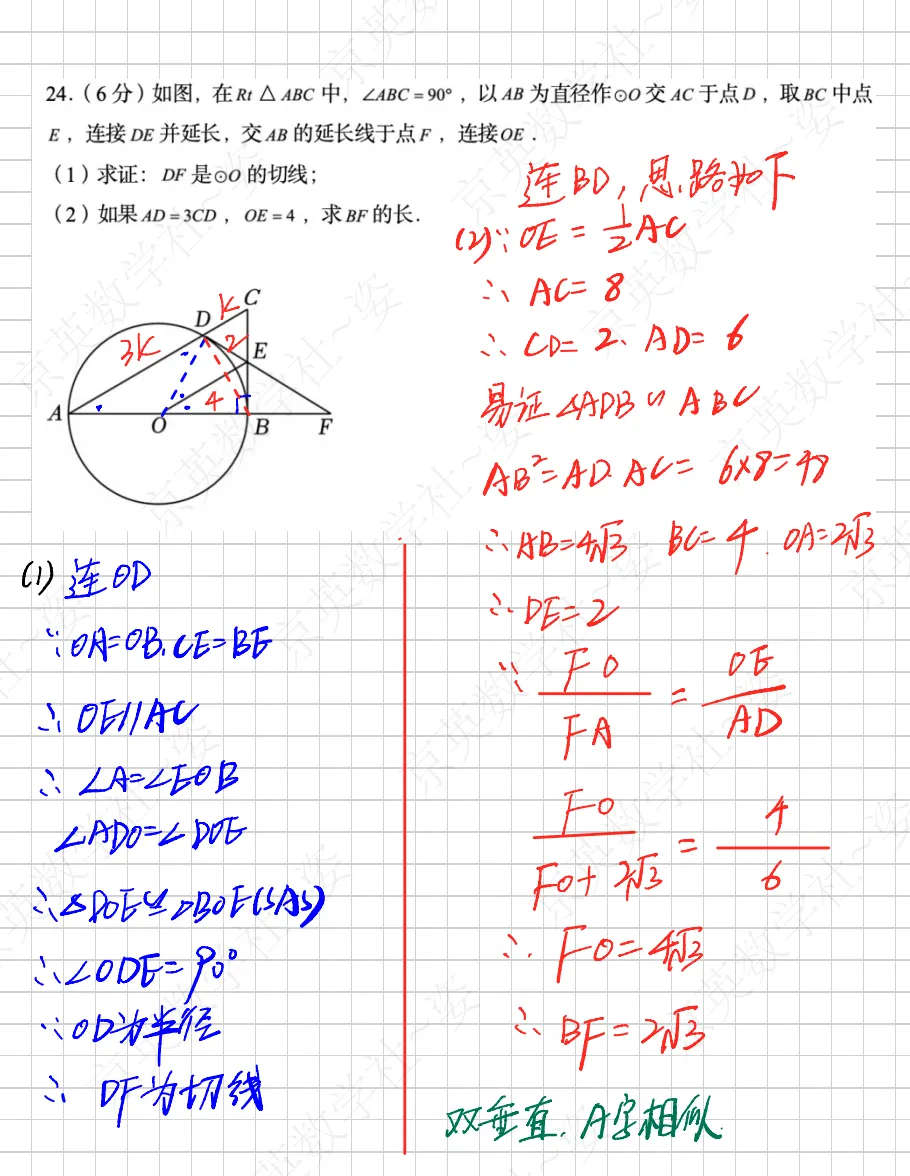 24.（6 分）如图，在 Rt △ ABC 中，∠ABC = 90°，以 AB 为直径作⊙O 交 AC 于点 D，取 BC 中点
E，连接 DE 并延长，交 AB 的延长线于点 F，连接 OE．
（1）求证：DF 是⊙O 的切线；
（2）如果 AD = 3CD，OE = 4，求 BF 的长．
连BD，思路如下
(2) ∵ OE = 1/2 AC
∴ AC = 8
∴ CD = 2、AD = 6
易证 △ADB ∽ ABC
AB² = AD·AC = 6×8 = 48
∴ AB = 4√3  BC = 4．OA = 2√3
∴ DE = 2
∵ FO/FA = OE/AD
FO/(FO + 2√3) = 4/6
∴ FO = 4√3
∴ BF = 2√3
双垂直．A字相似
K
C
D
3K
2
E
4
A
O
B
F
(1) 连OD
∵ OA=OB、CE=BE
∴ OE//AC
∴ ∠A=∠EOB
∠ADO=∠DOE
∴ △DOE≌△BOE(SAS)
∴ ∠ODE=90°
∵ OD为半径
∴ DF为切线
京英数学社~姿